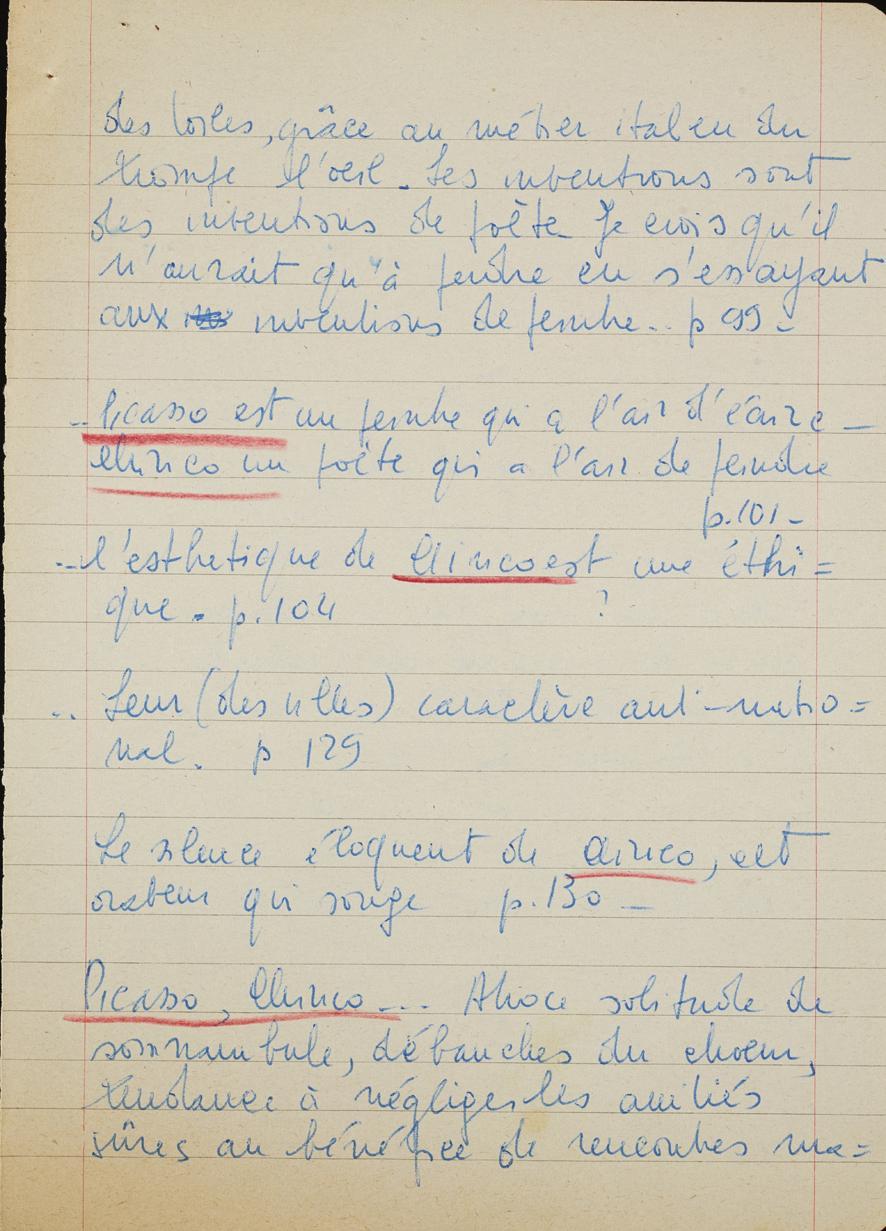 des toiles, grâce au métier italien du
trompe l'oeil. Ses inventions sont
des inventions de poëte. Je crois qu'il
n'aurait qu'à perdre en s'essayant
aux inventions de peintre.. p 99 -
.. Picasso est un peintre qui a l'air d'écrire -
Chirico un poëte qui a l'air de peindre
p.101 -
.. l'esthetique de Chirico est une éthi=
que. p.104 ?
.. Leur (des villes) caractère anti-natio=
nal. p 129
Le silence éloquent de Chirico, cet
orateur qui songe p.130 -
Picasso, Chirico... Atroce solitude de
somnambule, débauches du choeur,
tendance à négliger les amitiés
sûres au bénéfice de rencontres ma=